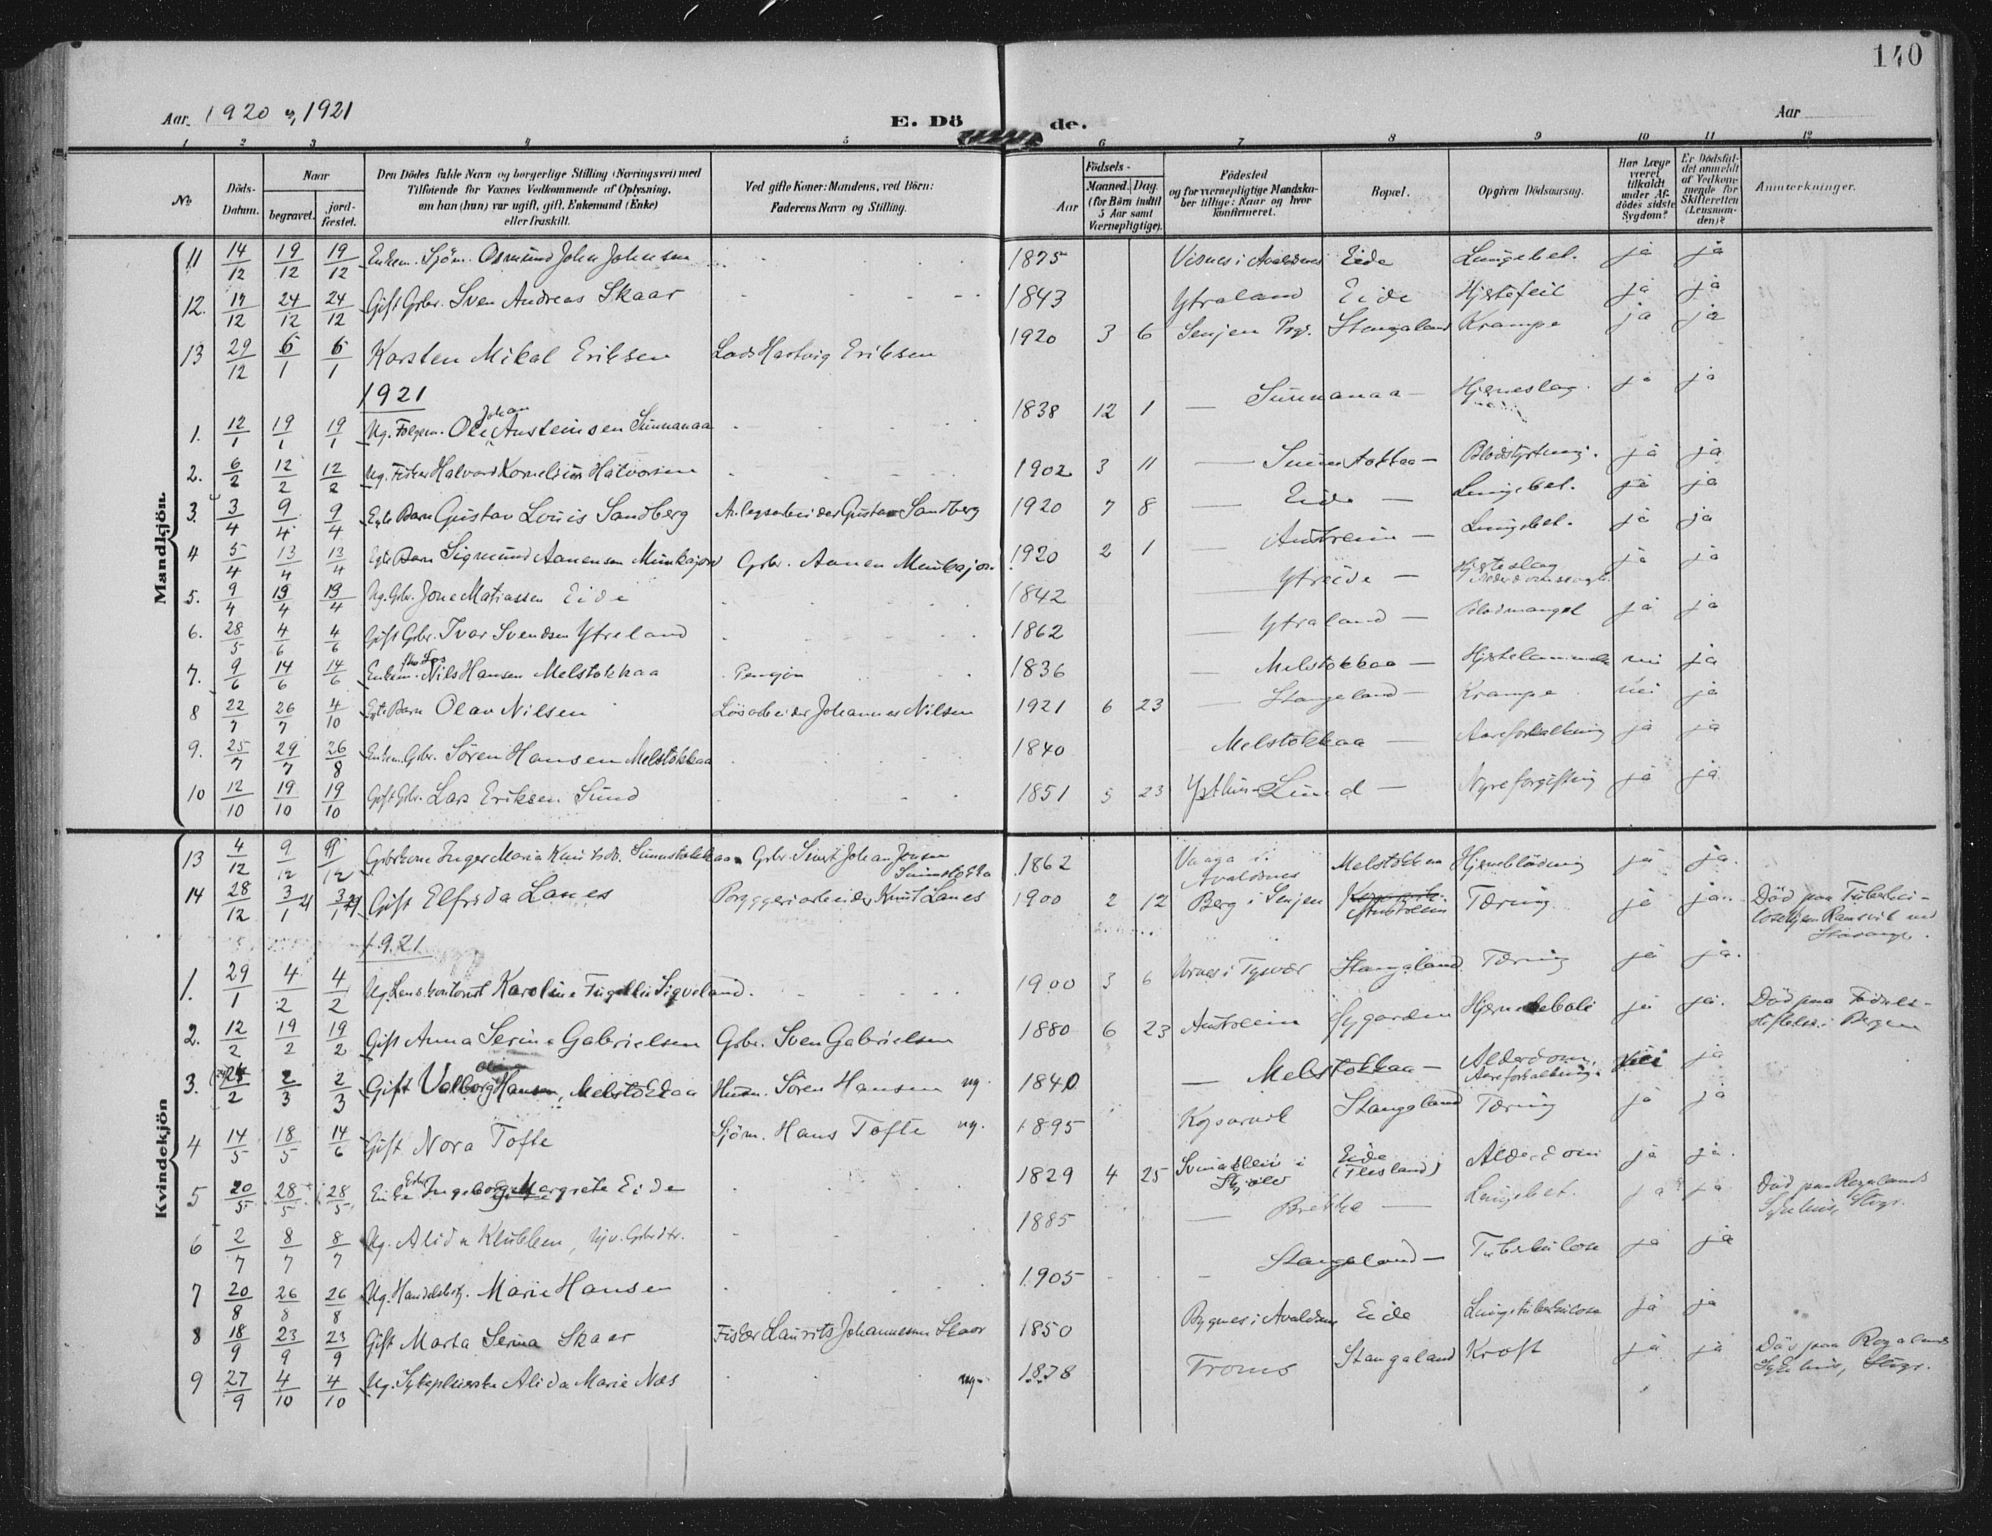 140
Aar 1920 og 1921
E. Dö de.
Aar
1 2 3 4 5 6 7 8 9 10 11 12
No.
Döds-Datum.
Naar
begravet. jord-fæstet.
Den Dödes fulde Navn og borgerlige Stilling (Næringsvei) med
Tilföiende for Voxnes Vedkommende af Oplysning,
om han (hun) var ugift, gift, Enkemand (Enke)
eller fraskilt.
Ved gifte Koner: Mandens, ved Börn:
Faderens Navn og Stilling.
Födsels-
Aar
Maaned. Dag.
(for Börn indtil
5 Aar samt
Værnepligtige).
Födested
og for værnepligtige Mandska-
ber tillige: Naar og hvor
konfirmeret.
Bopæl.
Opgiven Dödsaarsag.
Har Læge
været
tilkaldt
under Af-
dödes sidste
Sygdom?
Er Dödsfal-
det anmeldt
af Vedkom-
mende for
Skifteretten
(Lensman-
den)?
Anmærkninger.
Mandkjön.
11 14/12 19/12 19/12 Enkem. Sjöm. Osmund John Johnsen 1875 Visnes i Avaldsnes Eide Lungebet. ja ja
12. 17/12 24/12 24/12 Gift Gbr. Sven Andreas Skaar 1843 Ytraland Eide Hjertefeil ja ja
13 29/12 6/1 6/1 Karsten Mikal Eriksen Lods Hartvig Eriksen 1920 3 6 Senjen Prgj. Stangaland Krampe ja ja
1921
1. 12/1 19/1 19/1 Ug. Folgem. Ole Johan Austeinsen Sunnanaa 1838 12 1 — Sunnanaa — Hjerneslag ja ja
2. 6/2 12/2 12/2 Ug. Fisker Halvard Kornelius Halvorsen 1902 3 11 — — Blodstyrtning. ja ja
3. 3/4 9/4 9/4 Egte Barn Gustav Louis Sandberg Gustav Sandberg 1920 7 8 — Eide — Lungebet. ja ja
4 5/4 13/4 13/4 Egte Barn Sigmund Aanensen Munkajord Gbr. Aanen Munkajord 1920 2 1 — Austreim — Lungebet. ja ja
5. 9/4 19/4 19/4 Ug. Gbr. Jone Matiassen Eide 1842 — Ytreide — Hjerteslag ja ja
6. 28/5 4/6 4/6 Gift Gbr. Ivar Svendsen Ytreland 1862 — Ytraland — Blodmangel ja ja
7. 9/6 14/6 14/6 Enkem. Nils Hansen Melstokkaa Pensjon 1836 — Melstokkaa — Hjertelammelse nei ja
8 22/7 26/7 4/10 Egte Barn Olav Nilsen Lösarbeider Johannes Nilsen 1921 6 23 — Stangeland — Krampe nei ja
9. 25/7 29/7 26/8 Enkem. Gbr. Sören Hansen Melstokkaa 1840 Melstokkaa — Aareforkalkning ja ja
10 12/10 19/10 19/10 Gift Gbr. Lars Eriksen Sund 1851 5 23 Sund — Nyreforgiftning ja ja
Kvindekjön
13 4/12 9/12 9/12 Gbrkone Inger Maria Knutsdr. Sunnstokkaa Gbr. Sivert Johan Jonsen Sunnstokka 1862 Vaaga i Avaldsnes Melstokkaa Hjerneblödning ja ja.
14 28/12 3/1 21 3/1 21 Gift Elfrida Lanes Byggeriarbeider Knut Lanes 1900 2 12 Berg i Senjen Austreim Tæring ja ja. Död paa Tuberku-
losehjem Ramsvik ved
Stavanger.
1921
1. 29/1 4/2 4/2 Ug. Karoline Sigveland. 1900 3 6 i Tysvær Stangaland Tæring ja ja.
2. 12/2 19/2 19/2 Gift Anna Serine Gabrielsen Gbr. Sven Gabrielsen 1880 6 23 Austreim Sygarden ja ja. Död paa
i Bergen
3. 2/3 2/3 Gift Valborg Hansen, Melstokkaa Husm. Sören Hansen ug. 1840 — Melstokkaa — Alderdom, Aareforkalkning. nei ja
4 14/5 18/5 14/6 Gift Nora Tofte Sjöm. Hans Tofte ug. 1895 Kopervik Stangaland Tæring ja ja
5 20/5 28/5 28/5 Enke Ingeborg Margrete Eide 1829 4 25 i Skjold Eide Alderdom ja ja.
6 2/7 8/7 8/7 Ug. Alida Klubben, 1885 — Brekke — Lungebet. ja ja Död paa Rogalands
Sykehus, Stvgr.
7 20/8 26/8 26/8 Ug. Marie Hansen 1905 — Stangaland — Tuberkulose ja ja
8 18/9 23/9 23/9 Gift Marta Serina Skaar Fisker Laurits Johannessen Skaar 1850 Bygnes i Avaldsnes Eide Lungetuberkulose ja ja
9 27/9 4/10 4/10 Ug. Sykepleierske Alida Marie Næs ug. 1878 Troms Stangaland Kræft ja ja Död paa Rogalands
Sykehus, Stvgr.